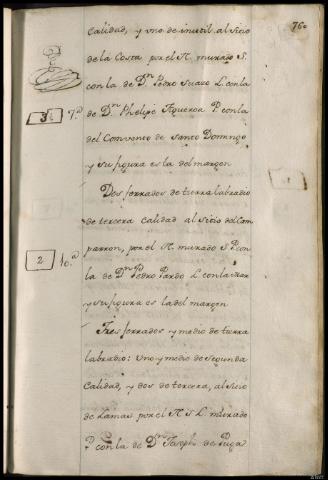 760
Calidad, y uno de inutil, al sicio
de la Costa por el N. murado S.
con la de Dn. Pedro Suaro L. con la
3 7.a de Dn. Phelipe Figueroa P. con la
del Convento de Santo Domingo
y su figura es la del margen
Dos ferrados de tierra labradio
de tercera Calidad al Sicio del Cam
parron, por el N. murado S. P. con
2 10.a la de Dn. Pedro Pardo L. con la Mar
y su figura es la del margen
Tres ferrados y medio de tierra
labradio: Uno y medio de segunda
Calidad, y dos de tercera, al Sicio
de Lamas por el N. S. L. murado
P. con la de Dn. Joseph de Puga